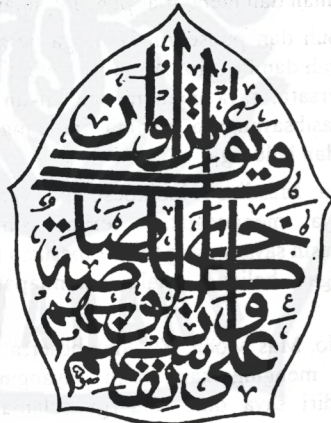 ويؤثرون
على أنفسهم
ولو كان بهم
خصاصة